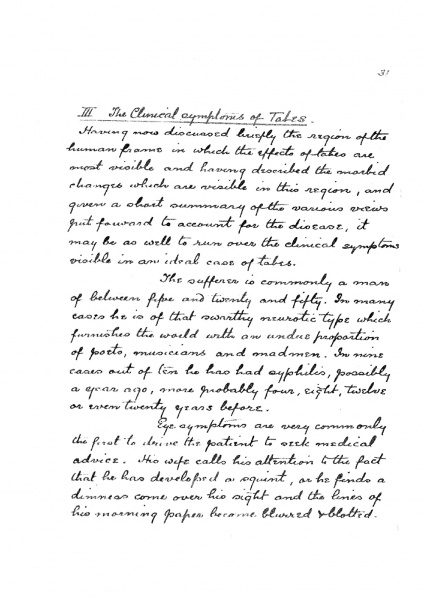 31
III The Clinical symptoms of Tabes.
Having now discussed briefly the region of the
human frame in which the effects of tabes are
most visible and having described the morbid
changes which are visible in this region, and
given a short summary of the various views
put forward to account for the disease, it
may be as well to run over the clinical symptoms
visible in an ideal case of tabes.
The sufferer is commonly a man
of between five and twenty and fifty. In many
cases he is of that swarthy neurotic type which
furnishes the world with an undue proportion
of poets, musicians and madmen. In nine
cases out of ten he has had syphilis, possibly
a year ago, more probably four, eight, twelve
or even twenty years before.
Eye symptoms are very commonly
the first to drive the patient to seek medical
advice. His wife calls his attention to the fact
that he has developed a squint, or he finds a
dimness come over his sight and the lines of
his morning paper become blurred & blotted.